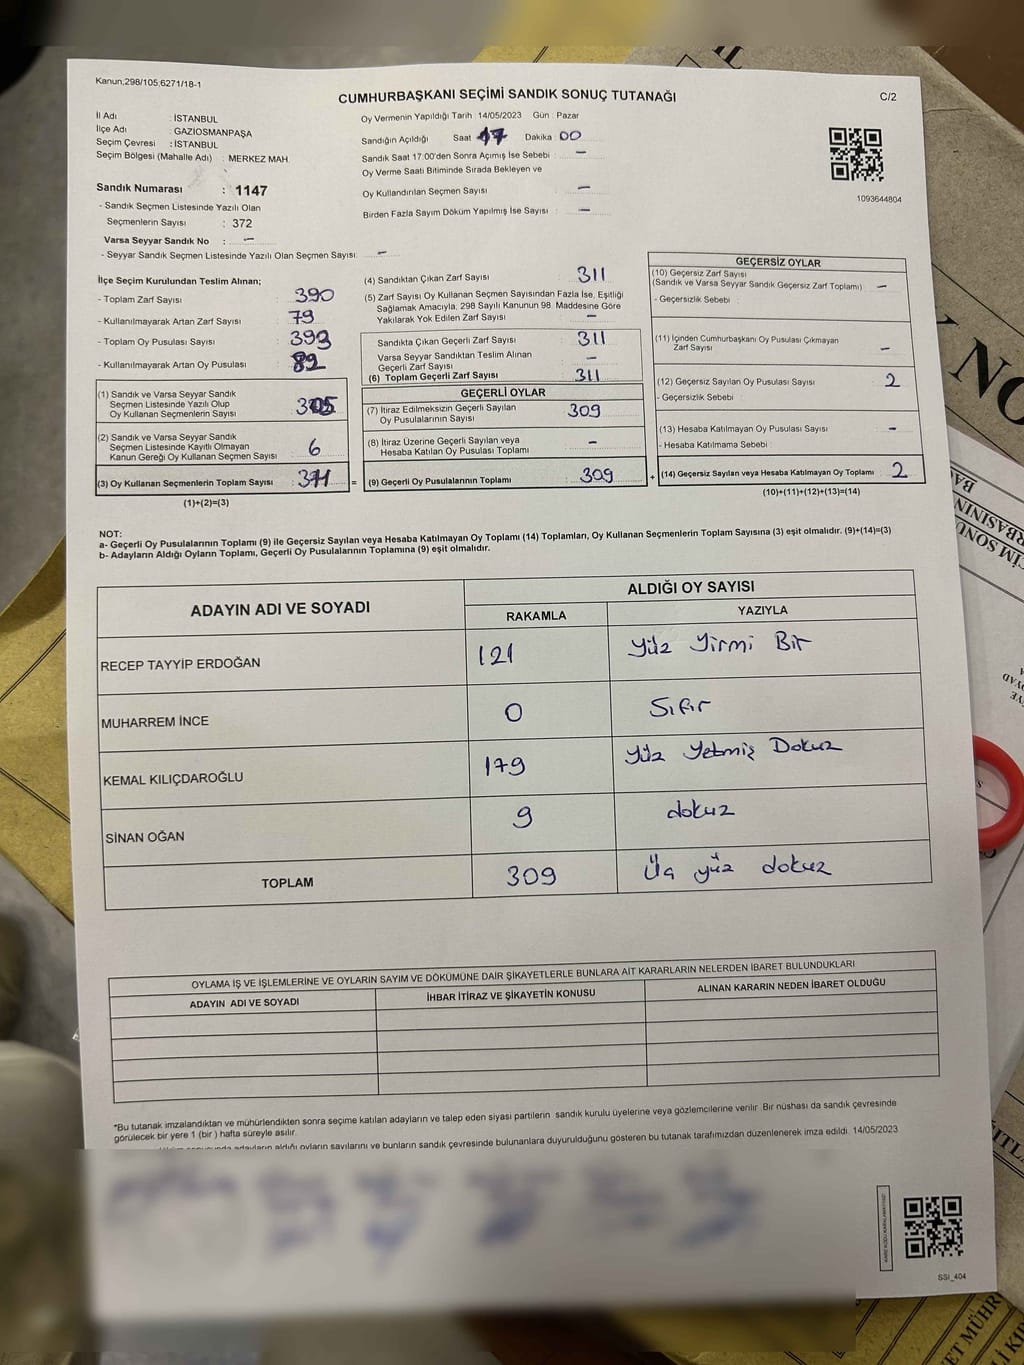 Kanun;298/105;6271/18-1
CUMHURBAŞKANI SEÇİMİ SANDIK SONUÇ TUTANAĞI
C/2
İl Adı : İSTANBUL
İlçe Adı : GAZİOSMANPAŞA
Seçim Çevresi : İSTANBUL
Seçim Bölgesi (Mahalle Adı) : MERKEZ MAH.
Sandık Numarası : 1147
- Sandık Seçmen Listesinde Yazılı Olan
Seçmenlerin Sayısı : 372
Varsa Seyyar Sandık No : -
- Seyyar Sandık Seçmen Listesinde Yazılı Olan Seçmen Sayısı: -
Oy Vermenin Yapıldığı Tarih : 14/05/2023 Gün : Pazar
Sandığın Açıldığı Saat 17 Dakika 00
Sandık Saat 17:00'den Sonra Açımış İse Sebebi : -
Oy Verme Saati Bitiminde Sırada Bekleyen ve
Oy Kullandırılan Seçmen Sayısı -
Birden Fazla Sayım Döküm Yapılmış İse Sayısı : -
1093644804
İlçe Seçim Kurulundan Teslim Alınan;
- Toplam Zarf Sayısı : 390
- Kullanılmayarak Artan Zarf Sayısı : 79
- Toplam Oy Pusulası Sayısı : 393
- Kullanılmayarak Artan Oy Pusulası : 82
(1) Sandık ve Varsa Seyyar Sandık
Seçmen Listesinde Yazılı Olup
Oy Kullanan Seçmenlerin Sayısı : 305
(2) Sandık ve Varsa Seyyar Sandık
Seçmen Listesinde Kayıtlı Olmayan
Kanun Gereği Oy Kullanan Seçmen Sayısı : 6
(3) Oy Kullanan Seçmenlerin Toplam Sayısı : 311 =
(1)+(2)=(3)
(4) Sandıktan Çıkan Zarf Sayısı 311
(5) Zarf Sayısı Oy Kullanan Seçmen Sayısından Fazla İse, Eşitliği
Sağlamak Amacıyla; 298 Sayılı Kanunun 98. Maddesine Göre
Yakılarak Yok Edilen Zarf Sayısı : -
Sandıkta Çıkan Geçerli Zarf Sayısı : 311
Varsa Seyyar Sandıktan Teslim Alınan
Geçerli Zarf Sayısı : -
(6) Toplam Geçerli Zarf Sayısı : 311
GEÇERLİ OYLAR
(7) İtiraz Edilmeksizin Geçerli Sayılan
Oy Pusulalarının Sayısı : 309
(8) İtiraz Üzerine Geçerli Sayılan veya
Hesaba Katılan Oy Pusulası Toplamı : -
(9) Geçerli Oy Pusulalarının Toplamı : 309 +
GEÇERSİZ OYLAR
(10) Geçersiz Zarf Sayısı
(Sandık ve Varsa Seyyar Sandık Geçersiz Zarf Toplamı) : -
- Geçersizlik Sebebi :
(11) İçinden Cumhurbaşkanı Oy Pusulası Çıkmayan
Zarf Sayısı : -
(12) Geçersiz Sayılan Oy Pusulası Sayısı : 2
- Geçersizlik Sebebi :
(13) Hesaba Katılmayan Oy Pusulası Sayısı : -
- Hesaba Katılmama Sebebi :
(14) Geçersiz Sayılan veya Hesaba Katılmayan Oy Toplamı : 2
(10)+(11)+(12)+(13)=(14)
NOT:
a- Geçerli Oy Pusulalarının Toplamı (9) ile Geçersiz Sayılan veya Hesaba Katılmayan Oy Toplamı (14) Toplamları, Oy Kullanan Seçmenlerin Toplam Sayısına (3) eşit olmalıdır. (9)+(14)=(3)
b- Adayların Aldığı Oyların Toplamı, Geçerli Oy Pusulalarının Toplamına (9) eşit olmalıdır.
ADAYIN ADI VE SOYADI
ALDIĞI OY SAYISI
RAKAMLA YAZIYLA
RECEP TAYYİP ERDOĞAN 121 Yüz Yirmi Bir
MUHARREM İNCE 0 Sıfır
KEMAL KILIÇDAROĞLU 179 Yüz Yetmiş Dokuz
SİNAN OĞAN 9 dokuz
TOPLAM 309 Üç yüz dokuz
OYLAMA İŞ VE İŞLEMLERİNE VE OYLARIN SAYIM VE DÖKÜMÜNE DAİR ŞİKAYETLERLE BUNLARA AİT KARARLARIN NELERDEN İBARET BULUNDUKLARI
ADAYIN ADI VE SOYADI İHBAR İTİRAZ VE ŞİKAYETİN KONUSU ALINAN KARARIN NEDEN İBARET OLDUĞU
*Bu tutanak imzalandıktan ve mühürlendikten sonra seçime katılan adayların ve talep eden siyasi partilerin sandık kurulu üyelerine veya gözlemcilerine verilir. Bir nüshası da sandık çevresinde
görülecek bir yere 1 (bir ) hafta süreyle asılır.
adayların aldığı oyların sayılarını ve bunların sandık çevresinde bulunanlara duyurulduğunu gösteren bu tutanak tarafımızdan düzenlenerek imza edildi. 14/05/2023
SSI_404
NO